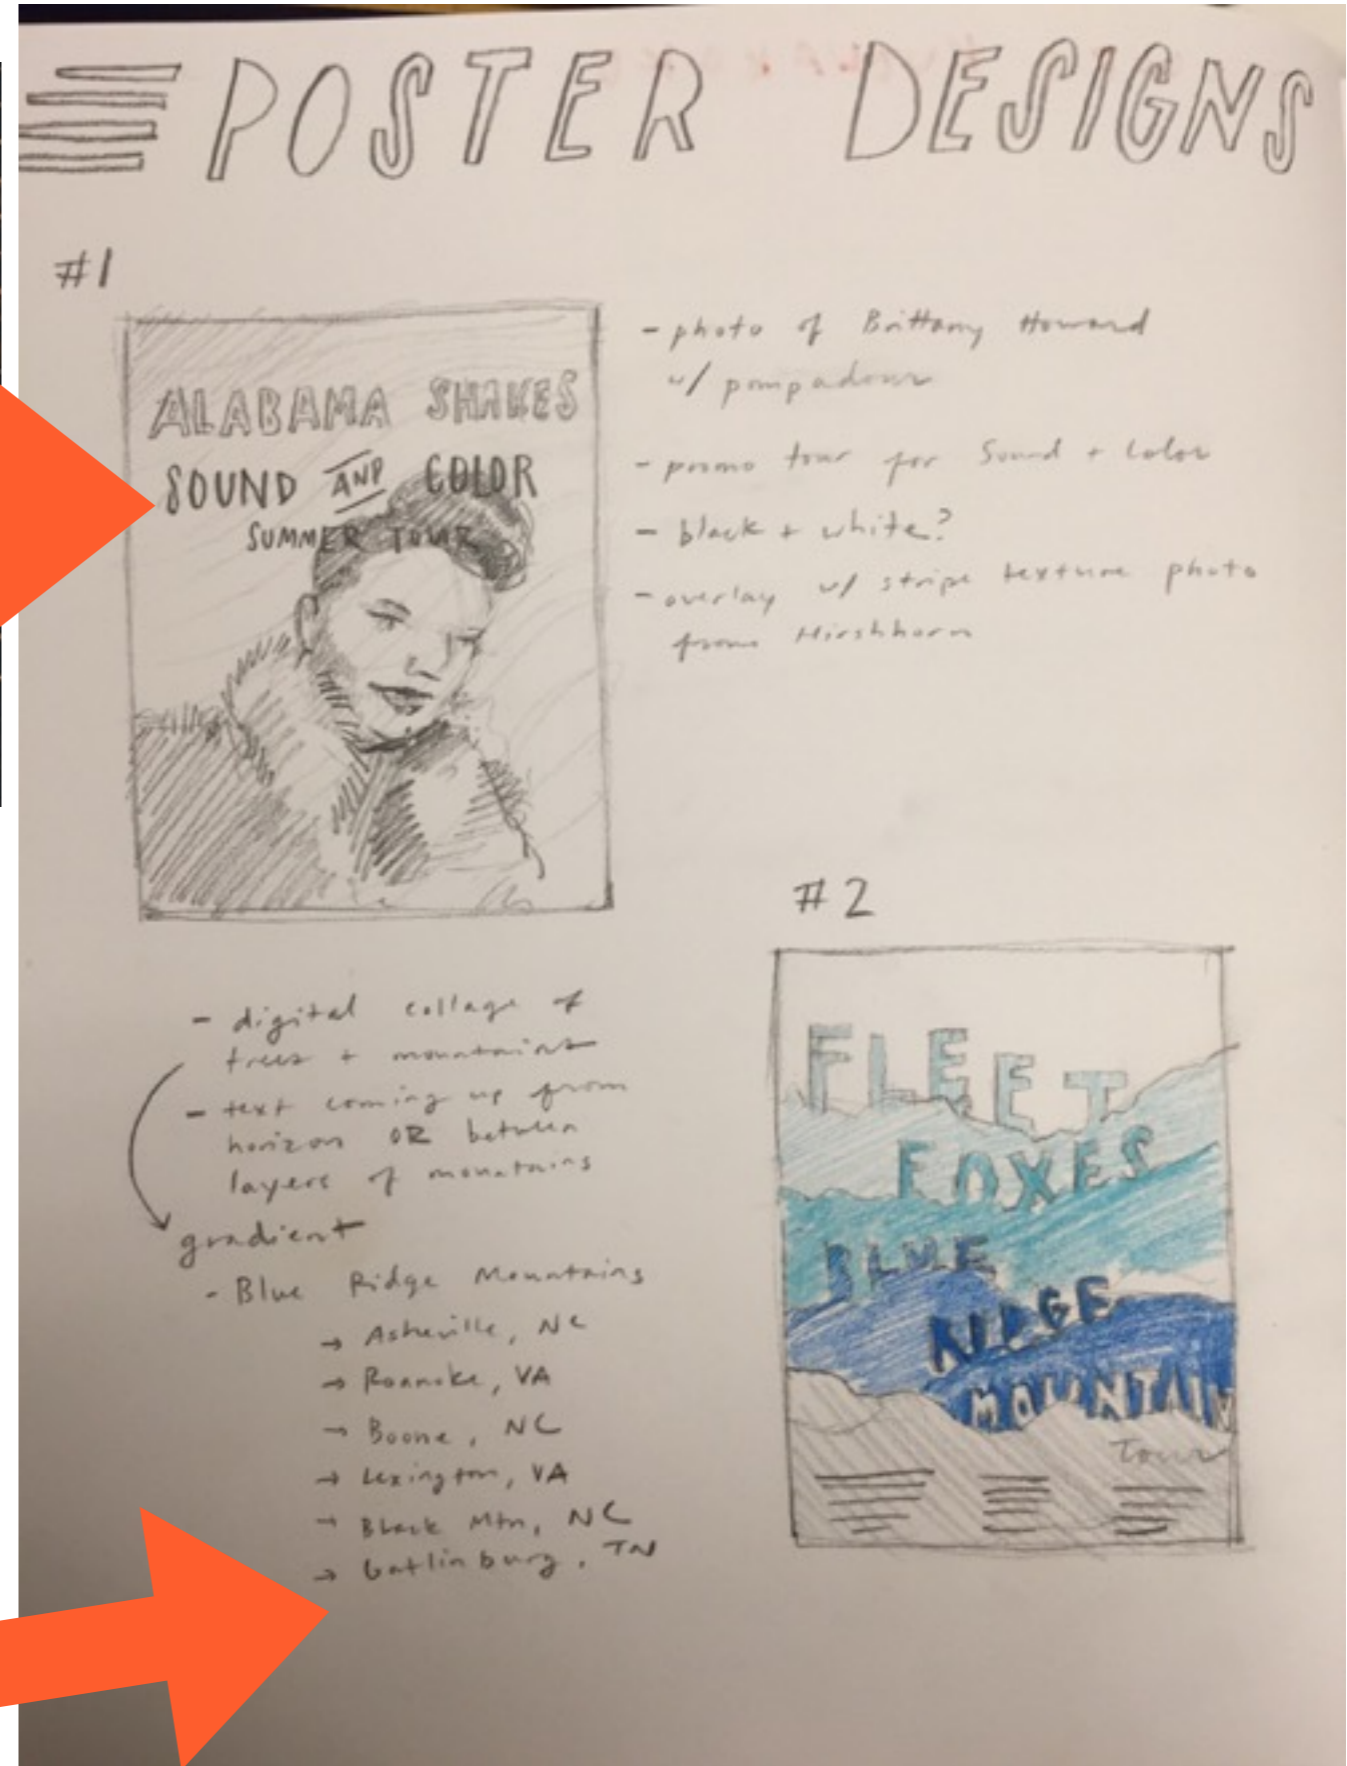 POSTER DESIGNS
#1
ALABAMA SHAKES
SOUND AND COLOR
SUMMER TOUR
- photo of Brittany Howard
w/ pompadour
- promo tour for Sound + Color
- black + white?
- overlay w/ stripe texture photo
from Hirshhorn
#2
FLEET
FOXES
BLUE
RIDGE
MOUNTAIN
Tour
- digital collage of
trees + mountains
- text coming up from
horizon OR between
layers of mountains
gradient
- Blue Ridge Mountains
→ Asheville, NC
→ Roanoke, VA
→ Boone, NC
→ Lexington, VA
→ Black Mtn, NC
→ Gatlinburg, TN